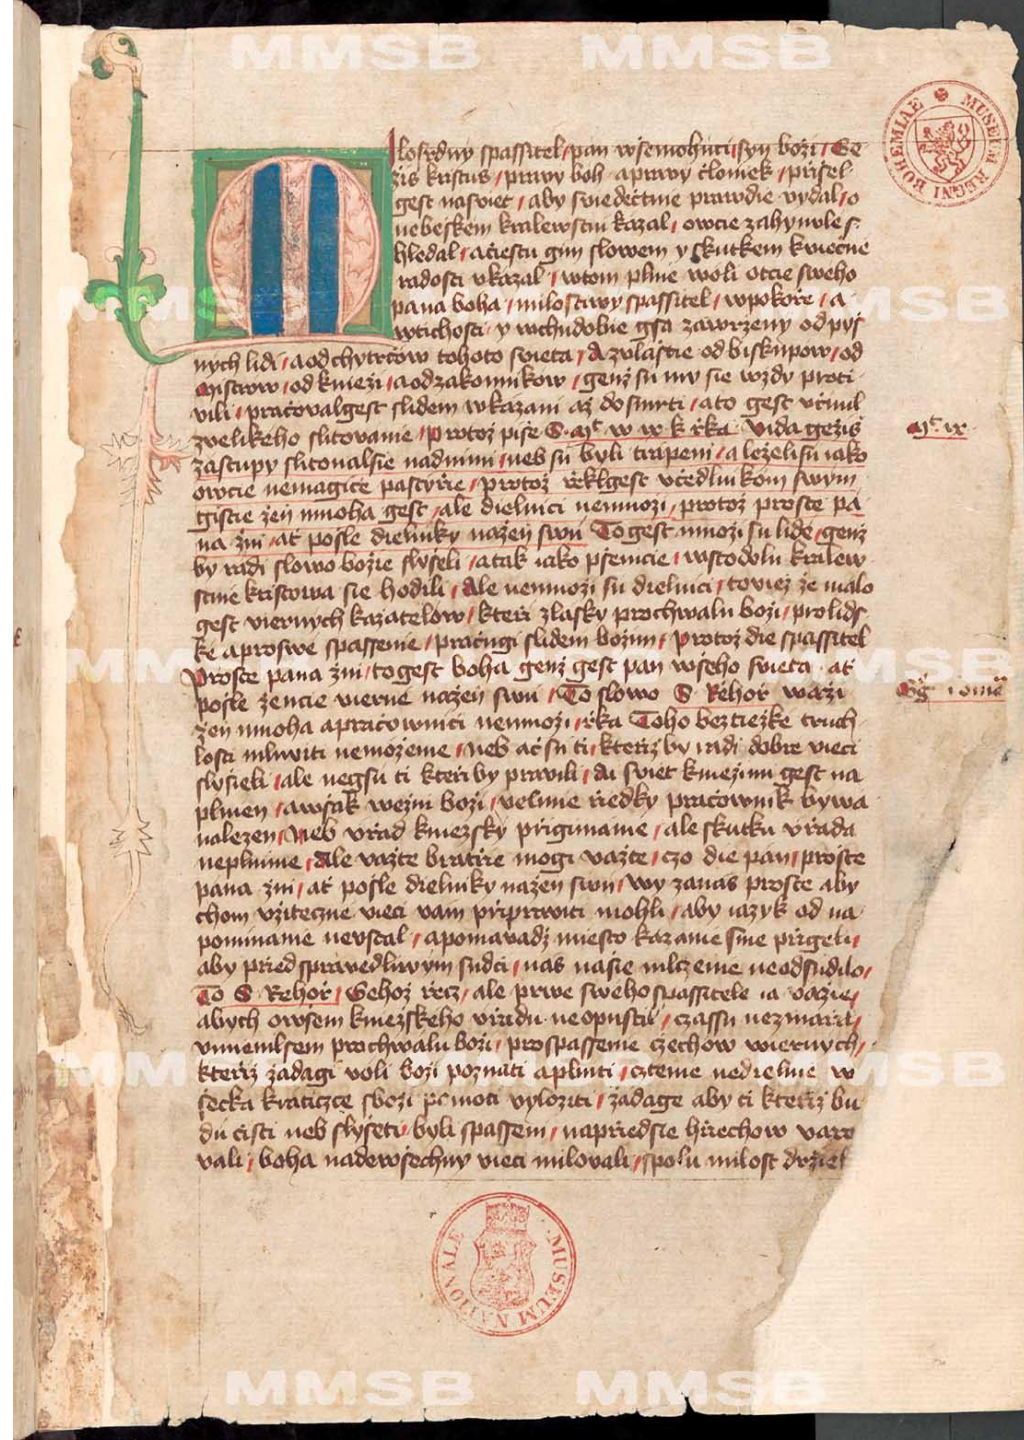 MMSB MMSB
MUSEUM REGNI BOHEMIAE
Milosrdny spassitel / pan wsemohuci / syn bozi / Ge
zis kristus / prawy boh aprawy člowiek / přissel
gest naswiet / aby swiedečtwie prawdie vydal / o
nebeskem kralewstwi kazal / owcie zahynule s
hledal / acżiestu gim slowem y skutkem kwiecne
radosti vkazal / wtom plnie woli otcie sweho
pana boha / milostiwy spassitel / wpokoře / a
wtichosti y wchudobie gsa zawrzeny od pys
nych lidi / a od chytrcow tohoto swieta / A zvlasstie od biskupow / od
Mistrow / od kniezi / a od zakonnikow / genż su mu sie wzdy proti
vili / pracowal gest / slidem wkazani aż do smrti / a to gest vcinil
zvelikeho slitowanie / protoż pisse S. Mt w ix k řka Vida geżis
Mt ix
zastupy slitowal sie nad nimi / neb su byli trapeni / a leżeli su iako
owcie nemagice pastyrie / protoż řekl gest vcedlnikom swym
gistie żen mnoha gest / ale dielnici nemnozi / protoż proste pa
na żni / at possle dielniky na żen swu To gest mnozi su lide / genż
by radi slowo bożie slysseli / a tak iako pssenicie / wstodolu kralew
stwie kristowa sie hodili / Ale nemnozi su dielnici / to wiez że malo
gest viernych kazatelow / kteři zlasky prochwalu bożi / prolids
ke a proswe spassenie / pracugi slidem bożim / Protoż die spassitel
Proste pana żni / to gest boha genż gest pan wsseho swieta at
possle żencie vierne na żen swu / To slowo S Řehořważi
żen mnoha a pracownici nemnozi / řka Toho bez tieżke truch
losti mluwiti nemożeme / neb ač su ti / kteřiż by radi dobre vieci
slysseli / ale negsu ti kteři by prawili / Ai swiet kniezimi gest na
plnien / a wssak wezni bożi / velmie riedky pracownik bywa
nalezen / Neb vřad kniezsky přigimame / ale skutku vřada
neplnime / Ale vażte bratřie mogi vażte / czo die pan / proste
pana żni / at possle dielniky na żen swu / wy zanas proste aby
chom vżitecne vieci vam připrawiti mohli / aby iazyk od na
pominanie nevstal / a poniawadż miesto kazanie sme přigeli /
aby přied sprawedliwym sudci / nas nasie mlczenie neodsudilo /
To S Řehoř / Gehoż řecz / ale prwe sweho spassitele ia vazie /
abych owsem kniezskeho vřadu neopustil / czassu nezmařil /
vmienil sem prochwalu bożi / prospassenie czechow wiernych /
kteřiż żadagi voli bożi poznati a plniti / cztenie nedielnie w
ssecka kraticzce sbożi pomoci vyloziti / żadage aby ti kteřiż bu
du cisti neb slysseti / byli spasseni / napřiedsie hřiechow varo
vali / boha nadewssechny vieci milovali / spolu milost drżel
MUSEUM NATIONALE
MMSB MMSB